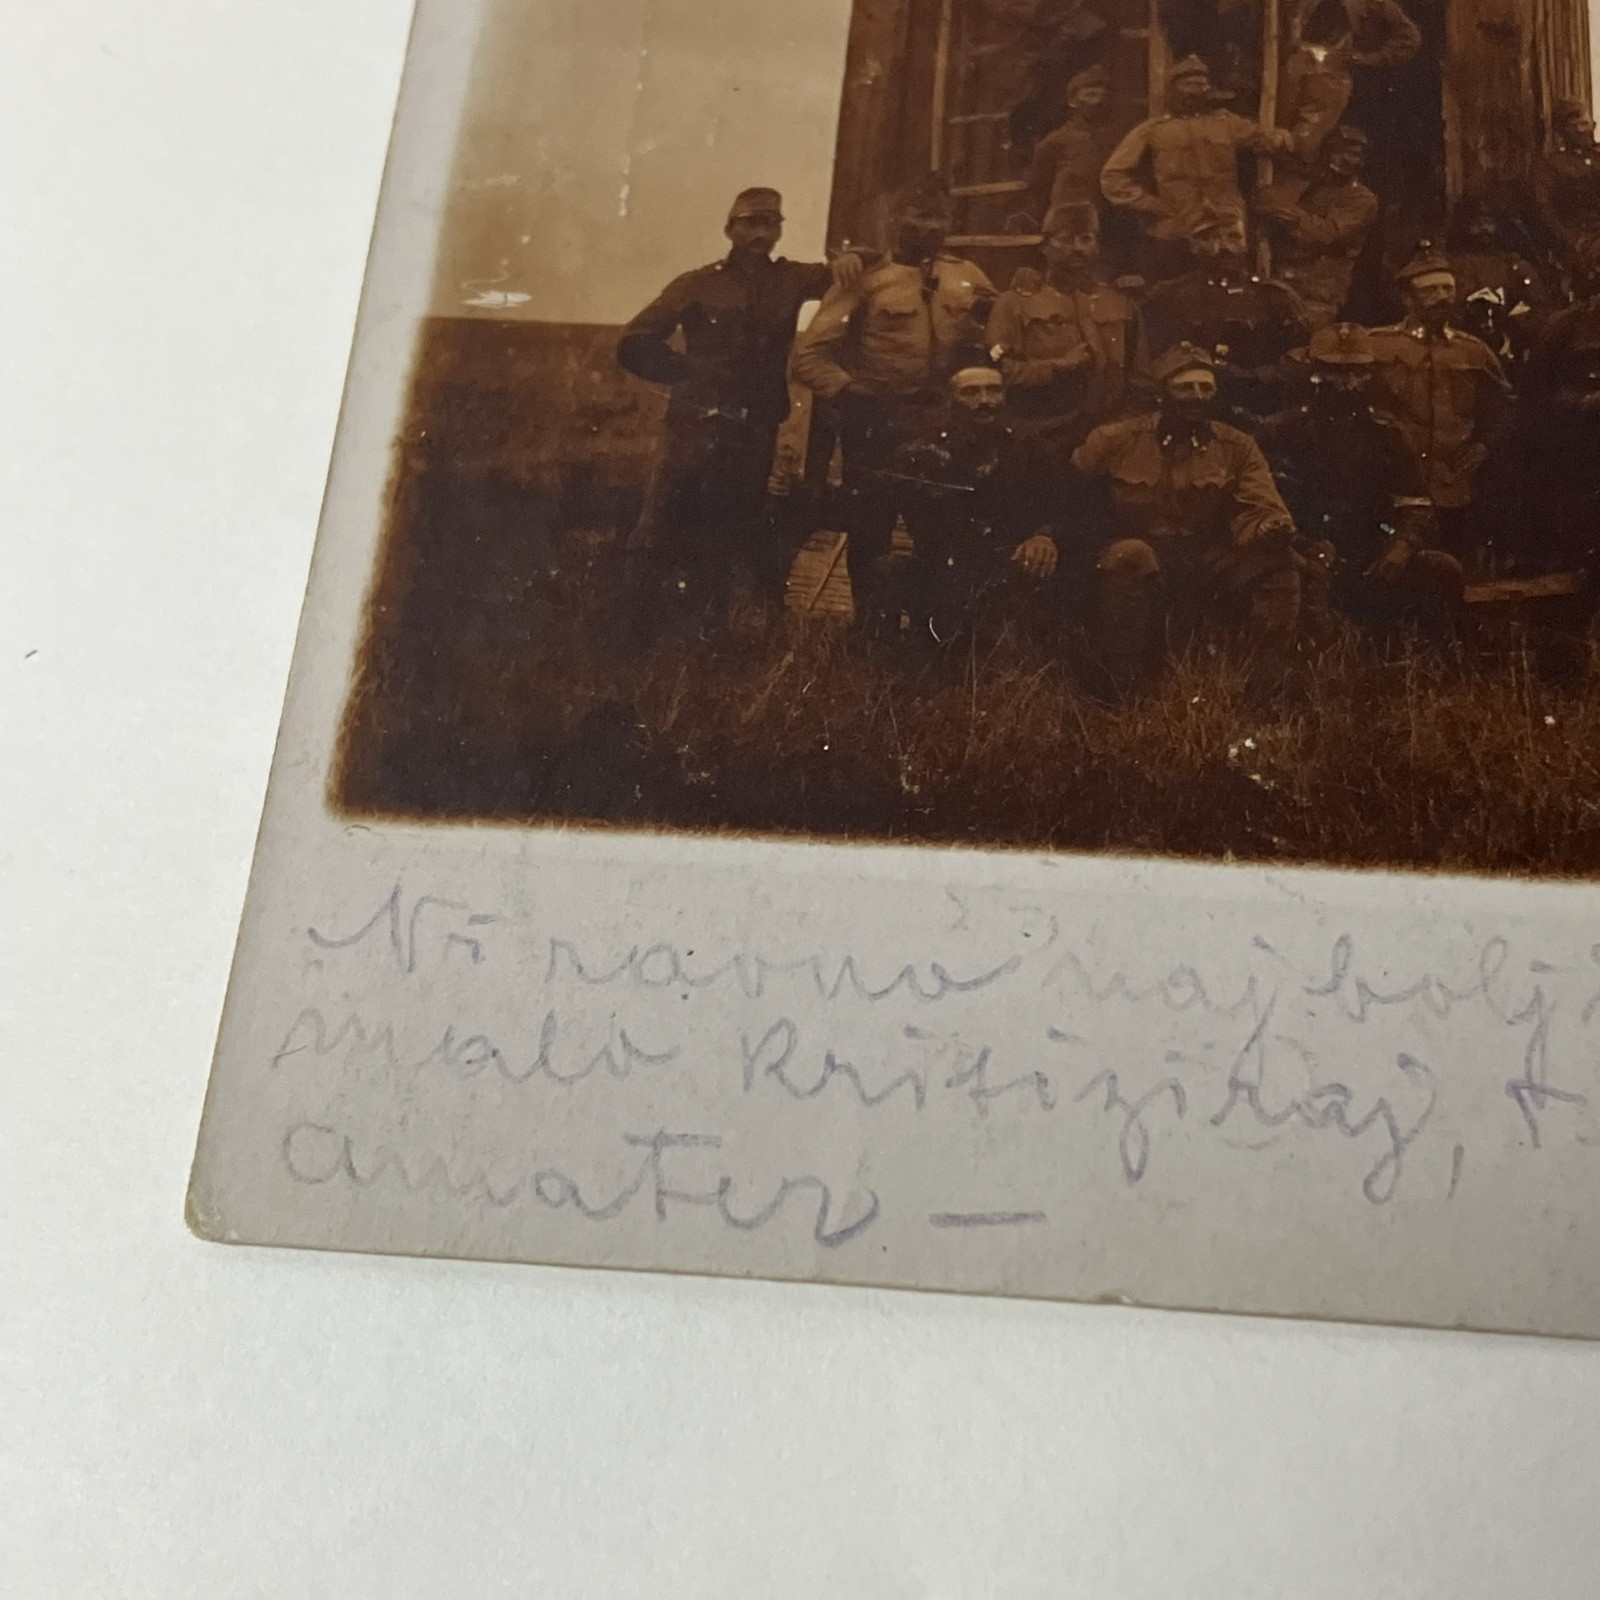 Ni ravno najbolj
malo kritiziraj,
amater —